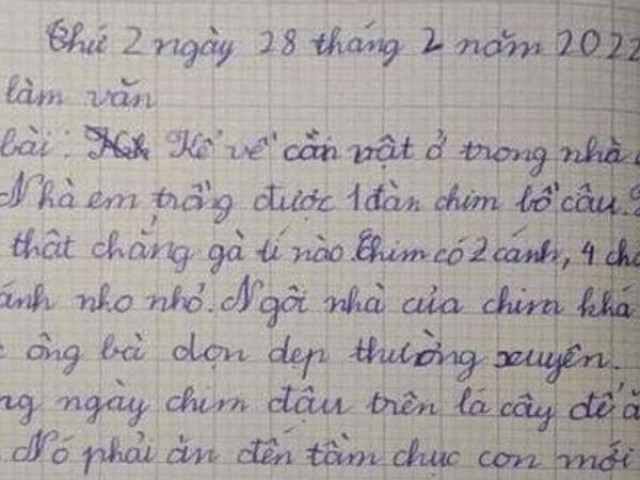 Thứ 2 ngày 28 tháng 2 năm 2022
làm văn
bài: Kể về cần vật ở trong nhà
Nhà em trồng được 1 đàn chim bồ câu.
thật chẳng gà tí nào. Chim có 2 cánh, 4
ánh nho nhỏ. Ngôi nhà của chim khá
ông bà dọn dẹp thường xuyên.
ngày chim đậu trên lá cây để
Nó phải ăn đến tầm chục con mới